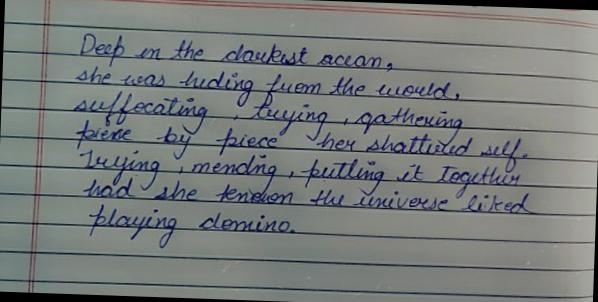 Deep in the darkest ocean,
she was hiding from the world,
suffocating, trying, gathering
piece by piece her shattered self.
Trying, mending, putting it together
had she known the universe liked
playing domino.